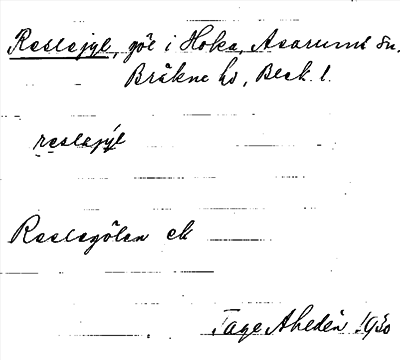 Raslajyl, göl i Hoka, Asarums sn.
Bräkne hd, Blek. l.
raslajýl
Raslagölen ek
Tage Ahedén 1930